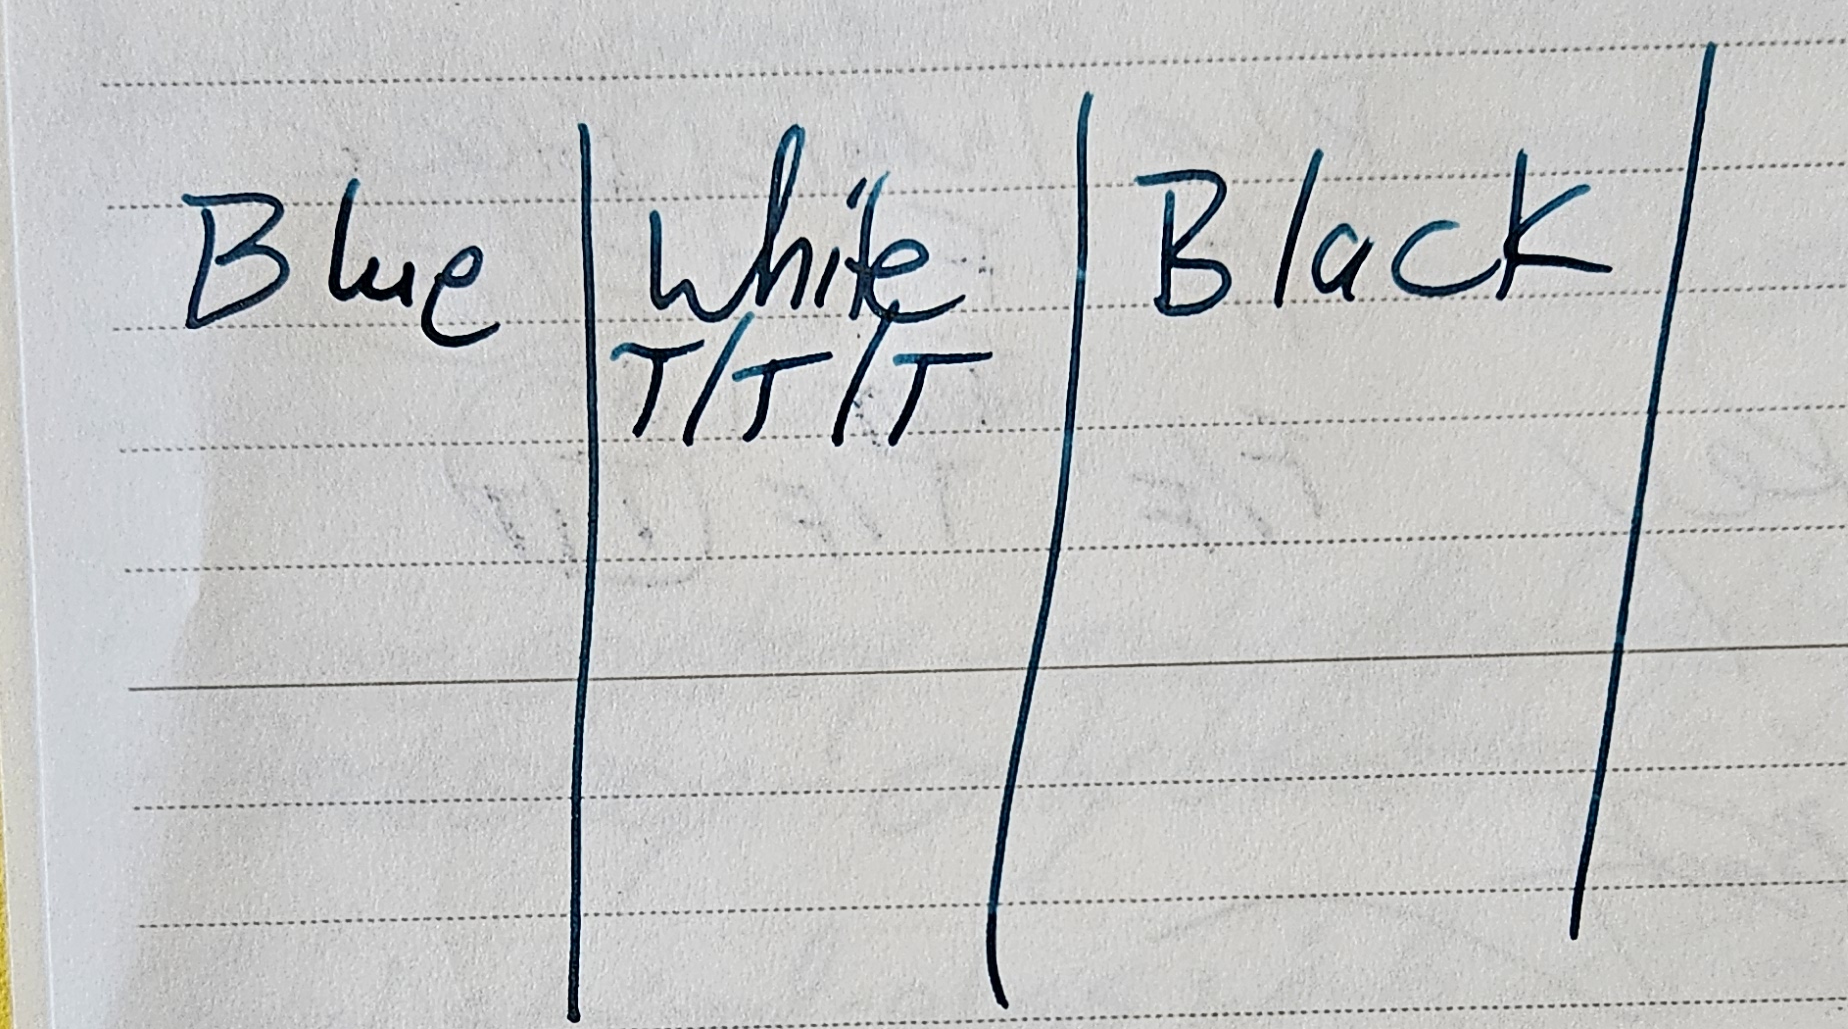 Blue | White | Black |
T/T/T